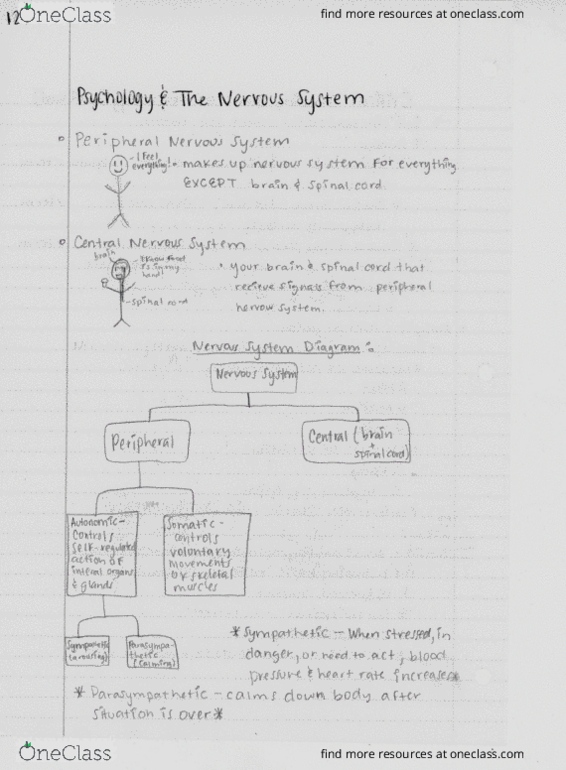 12
OneClass
find more resources at oneclass.com
Psychology & The Nervous System
Peripheral Nervous System
- I feel everything!
- makes up nervous system for everything
EXCEPT brain & spinal cord
Central Nervous System
brain
food
is in my
hand!
- spinal cord
• your brain & spinal cord that
recieve signals from peripheral
nervous system.
Nervous System Diagram:
Nervous System
Peripheral
Central (brain
+
spinal cord)
Autonomic-
controls
self-regulated
action of
internal organs
& glands
Somatic-
controls
voluntary
movements
of skeletal
muscles
Sympathetic
(arousing)
Parasympa-
thetic
(calming)
* Sympathetic - When stressed, in
danger, or need to act, blood
pressure & heart rate increases*
* Parasympathetic - calms down body after
situation is over *
OneClass
find more resources at oneclass.com